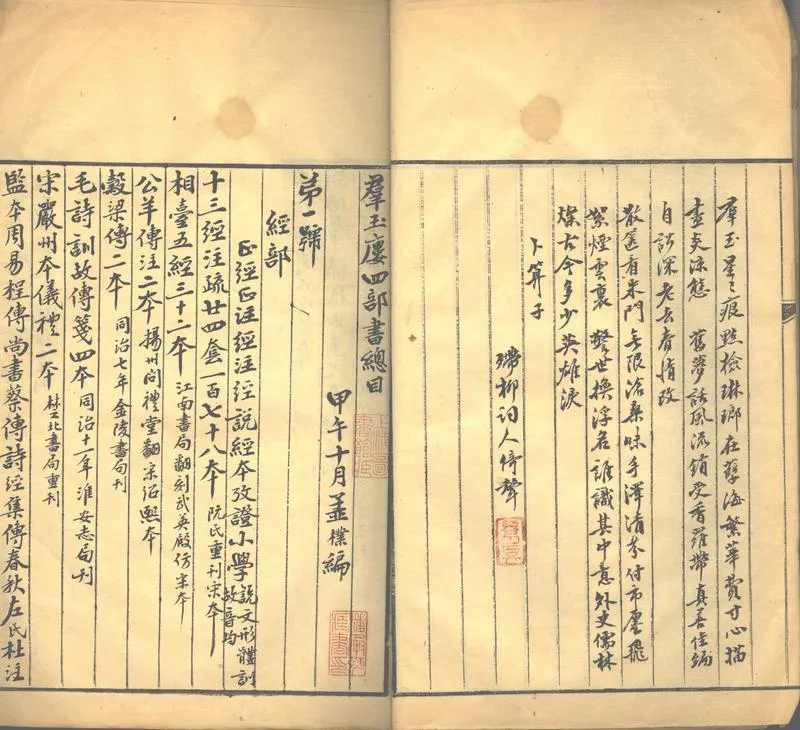 羣玉星々痕點檢琳瑯在孽海繁華費寸心描
盡炎涼態 舊夢話風流銷受香羅帶真善佳編
自訟深老去看情改
散篋看朱門無限滄桑味手澤清芬付市廛飛
絮煙雲裏 警世換浮名誰識其中意外史儒林
燦古今多少英雄淚
卜算子
殢柳詞人倚聲
羣玉廔四部書總目
甲午十月孟樸編
第一號
經部
正經正注經注經說經本攷證小學說文形體訓故音均
十三經注疏廿四套一百七十八本 阮氏重刊宋本
相臺五經三十二本 江南書局翻刻武英殿仿宋本
公羊傳注二本 揚州問禮堂翻宋紹熙本
穀梁傳二本 同治七年金陵書局刊
毛詩訓故傳箋四本 同治十一年淮安志局刊
宋嚴州本儀禮二本 書局重刊
監本周易程傳尚書蔡傳詩經集傳春秋左氏杜注